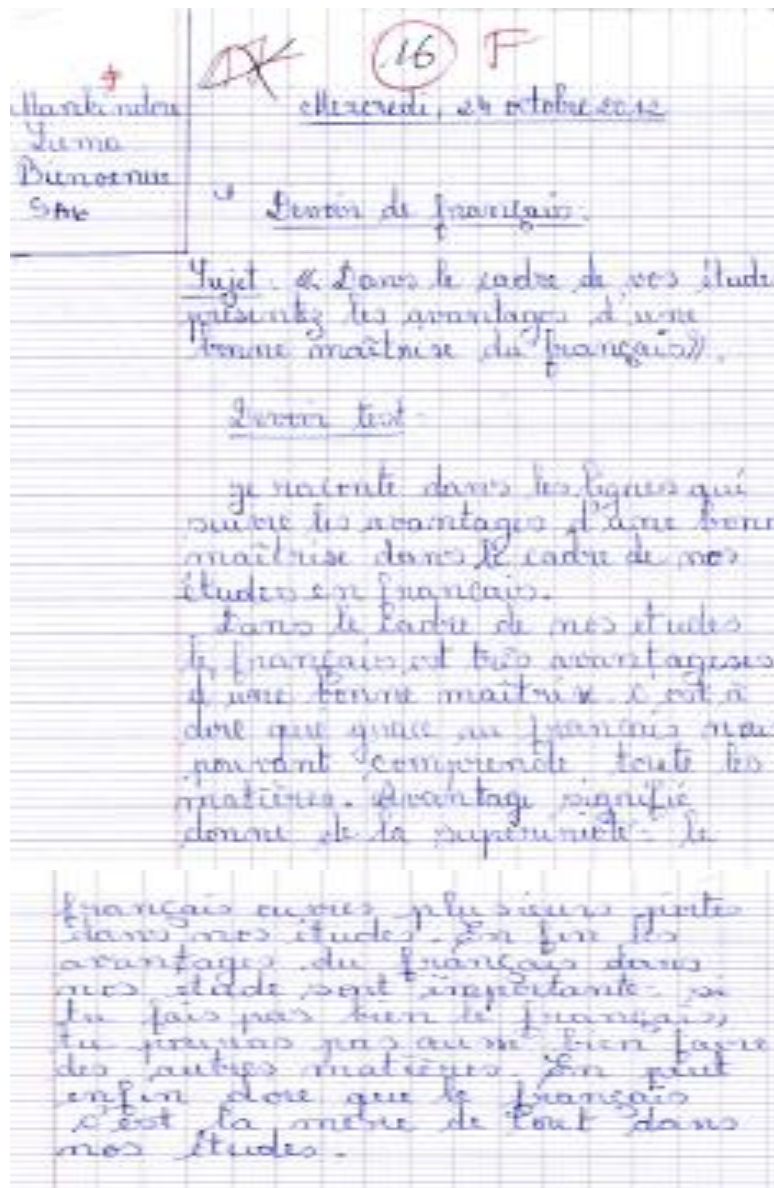 16 F
Mankindou
Yuma
Bienvenue
Mercredi, 24 octobre 2012
Devoir de français.
Sujet : « Dans le cadre de vos étude
présentez les avantages d'une
bonne maîtrise du français».
Devoir test.
je raconte dans les lignes qui
suivre les avantages d'une bonn
maîtrise dans le cadre de nos
études en français.
Dans le cadre de nos études
le français est très avantageses
d'une bonne maîtrise. c'est à
dire que grace au français nous
pouvant comprende toute les
matières. Avantage signifie
donne de la superiorité. Le
français ouvres plusieurs portes
dans nos études. En fin les
avantages du français dans
nos étude sont importante. si
tu fais pas bien le français,
tu pourras pas aussi bien faire
des autres matières. En peut
enfin dire que le français
c'est la mère de tout dans
nos études.